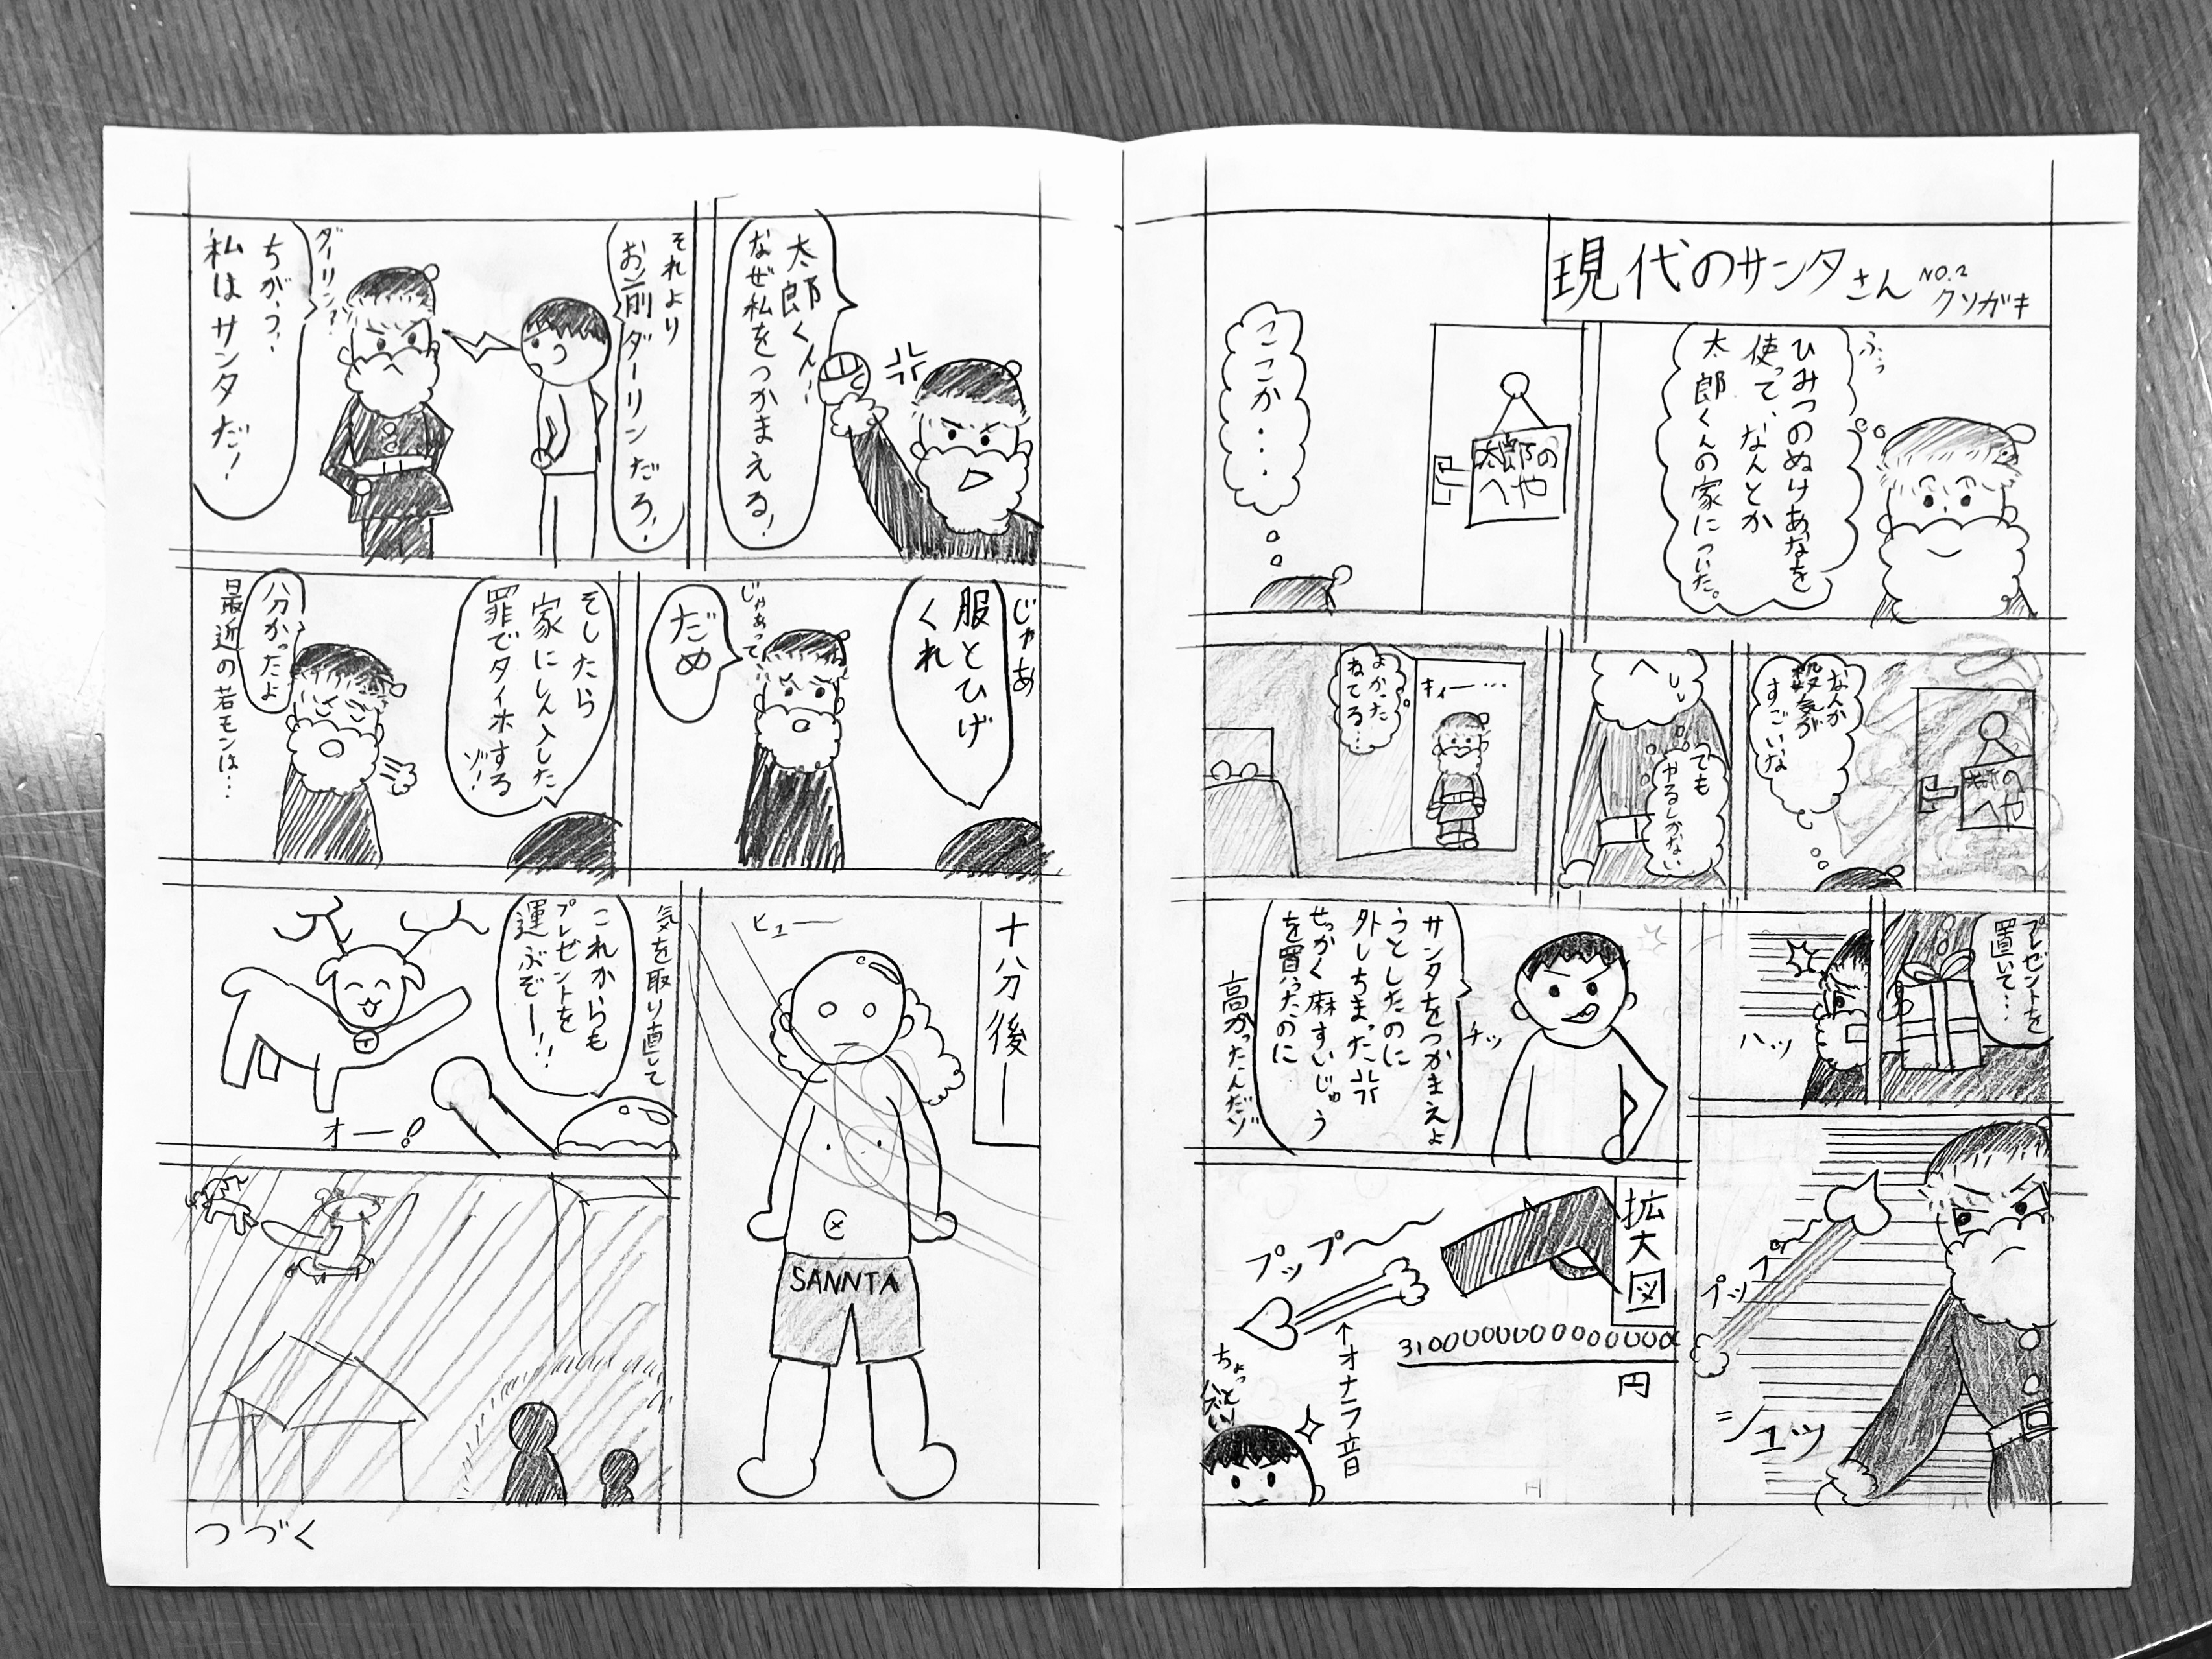 現代のサンタさん
NO.2
クソガキ
ふっ
ひみつのぬけあなを
使って、なんとか
太郎くんの家についた。
太郎の
へや
ここか・・・
なんか
殺気が
すごいな
太郎の
へや
でも
やるしかない
キィー…
よかった
ねてる…
プレゼントを
置いて…
ハッ
プップ〜
シュッ
チッ
サンタをつかまえよ
うとしたのに
外しちまった
せっかく麻すいじゅう
を買ったのに
高かったんだゾ
拡大図
プップ〜
↑オナラ音
円
ちょっと
太郎くん!
なぜ私をつかまえる!
それより
お前ダーリンだろ!
ダーリン?
ちがう、
私はサンタだ!
じゃあ
服とひげ
くれ
じゃあって、
だめ
そしたら
家にしん入した
罪でタイホする
ゾ!
分かったよ
最近の若モンは…
十八分後ー
ヒュー
SANNTA
気を取り直して
これからも
プレゼントを
運ぶぞー!!
オー!
つづく